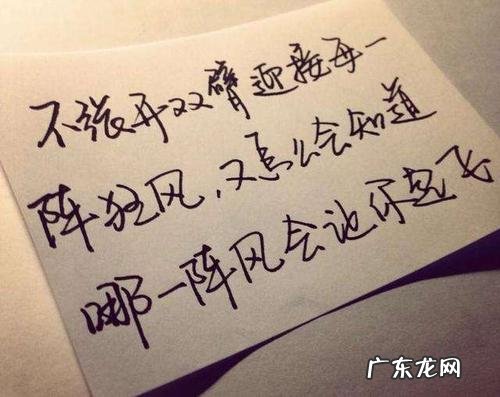 不张开双臂迎接每一
阵狂风,又怎么会知道
哪一阵风会让你起飞
广东龙网